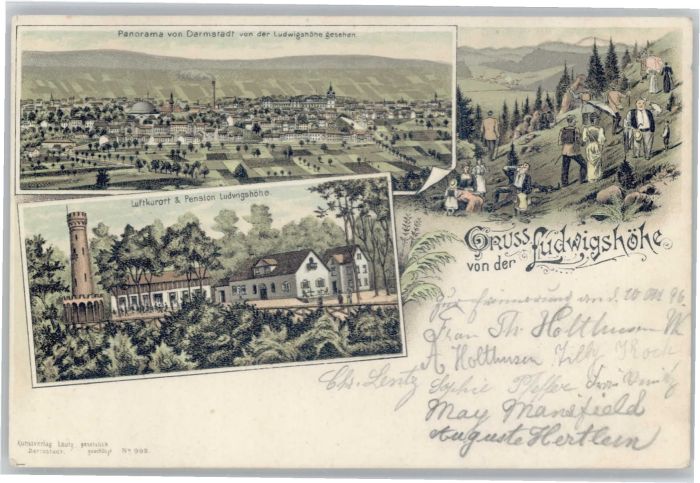 Panorama von Darmstadt von der Ludwigshöhe gesehen.
Luftkurort & Pension Ludwigshöhe
Gruss
von der Ludwigshöhe
Zur Erinnerung an d. 10
Frau Th. Holthusen
A Holthusen Tilly Krock
Chs. Lentz Sophie Pfeffer
May Mansfield
Auguste Hertlein
Kunstverlag Lautz gesetzlich
Darmstadt. geschützt No 992.